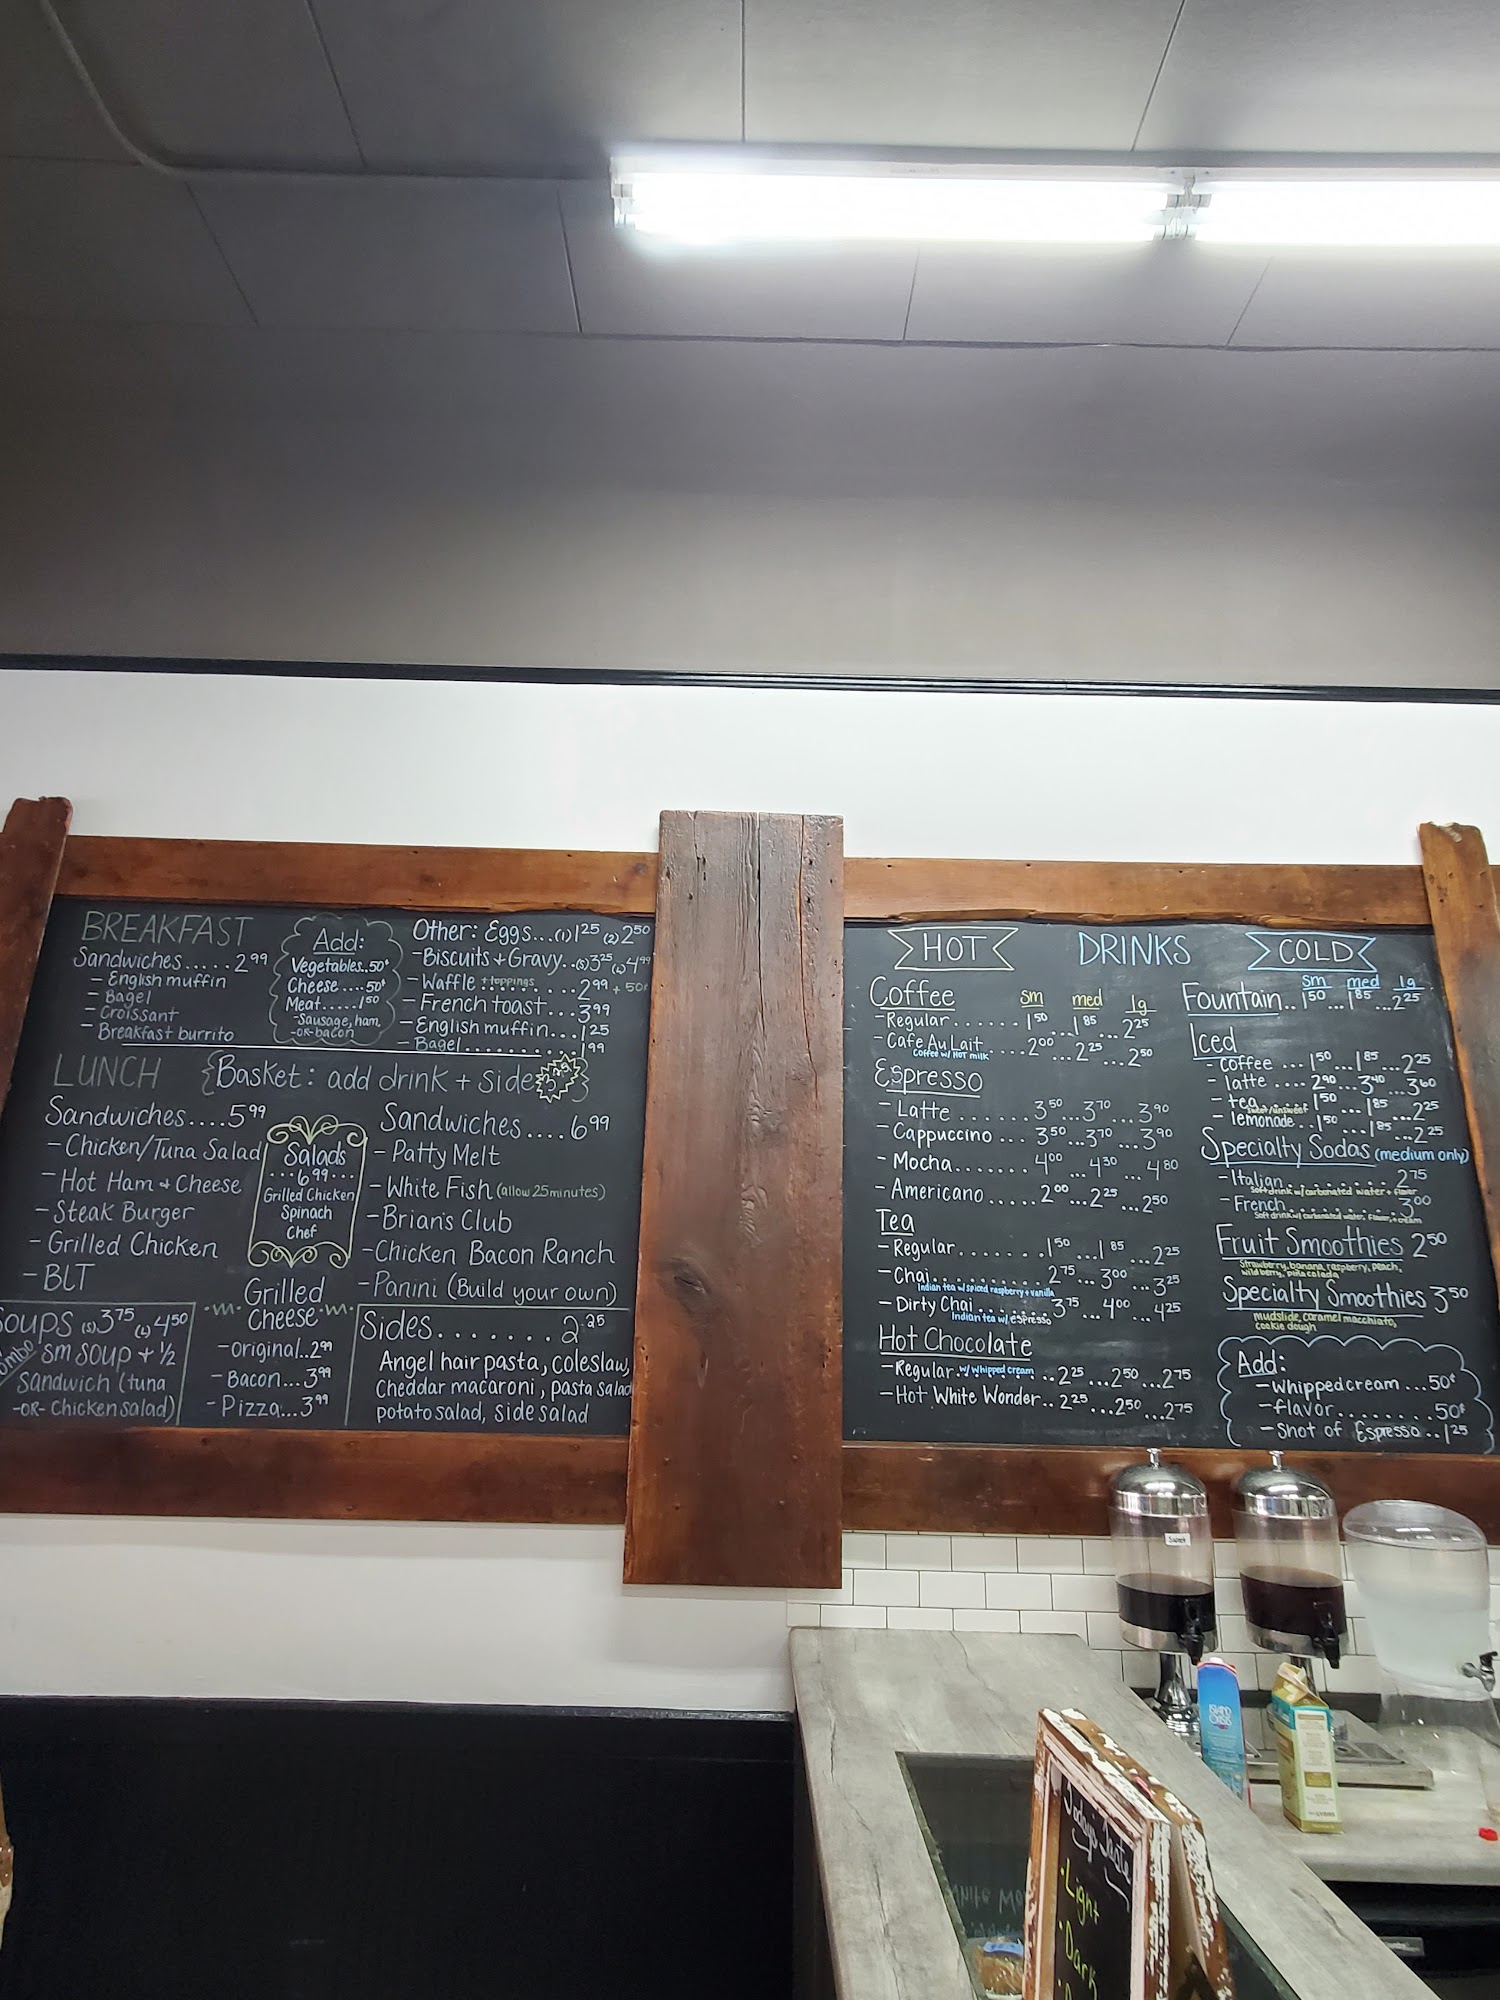 BREAKFAST
Sandwiches.....2.99
- English muffin
- Bagel
- Croissant
- Breakfast burrito
Add:
Vegetables..50¢
Cheese....50¢
Meat.....1.50
-Sausage, ham,
-OR- bacon
Other: Eggs...(1)1.25 (2)2.50
-Biscuits + Gravy..(S)3.25 (L)4.99
-Waffle + toppings.......2.99 + 50¢
-French toast...3.99
-English muffin...1.25
-Bagel..........1.99
LUNCH
Basket: add drink + side
Sandwiches....5.99
-Chicken/Tuna Salad
-Hot Ham + Cheese
-Steak Burger
-Grilled Chicken
-BLT
Salads
..6.99...
Grilled Chicken
Spinach
Chef
Sandwiches....6.99
-Patty Melt
-White Fish (allow 25 minutes)
-Brian's Club
-Chicken Bacon Ranch
-Panini (Build your own)
Soups (S)3.75 (L)4.50
sm soup + 1/2
Sandwich (tuna
-OR- Chicken salad)
Grilled
Cheese
-original..2.99
-Bacon...3.99
-Pizza...3.99
Sides.......2.95
Angel hair pasta, coleslaw,
Cheddar macaroni, pasta salad
potato salad, side salad
HOT
DRINKS
COLD
Coffee sm med lg
-Regular......1.50...1.85...2.25
-Cafe Au Lait....2.00...2.25...2.50
Coffee w/ Hot milk
Espresso
-Latte.......3.50...3.70...3.90
-Cappuccino...3.50...3.70...3.90
-Mocha.......4.00...4.30...4.80
-Americano.....2.00...2.25...2.50
Tea
-Regular.......1.50...1.85...2.25
-Chai.........2.75...3.00...3.25
Indian tea w/ spiced raspberry + vanilla
-Dirty Chai.......3.75...4.00...4.25
Indian tea w/ espresso
Hot Chocolate
-Regular w/ whipped cream..2.25...2.50...2.75
-Hot White Wonder..2.25...2.50...2.75
sm med lg
Fountain..1.50...1.85...2.25
Iced
-Coffee...1.50...1.85...2.25
-latte....2.90...3.40...3.60
-tea......1.50...1.85...2.25
sweet/unsweet
-lemonade..1.50...1.85...2.25
Specialty Sodas (medium only)
-Italian..........2.75
Soft drink w/ carbonated water + flavor
-French..........3.00
Soft drink w/ carbonated water, flavor, + cream
Fruit Smoothies 2.50
Strawberry, banana, raspberry, peach,
wild berry, piña colada
Specialty Smoothies 3.50
mudslide, caramel macchiato,
cookie dough
Add:
-whipped cream...50¢
-flavor........50¢
-Shot of Espresso..1.25
Sweet
ISLAND
OASIS
Today's Taste
·Light
·Dark